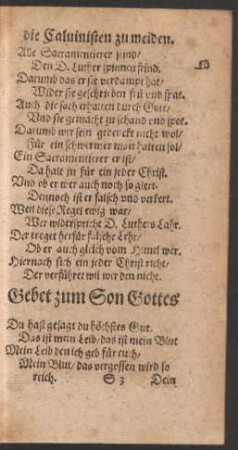 die Caluinisten zu meiden.
Alle Sacramentierer sind/
Den D. Luther spinnen feind,
Darumb das er sie verdampt hat/
Wider sie geschrieben frü vnd spat.
Auch die sach erhalten durch Gott/
Vnd sie gemacht zu schand vnd spot.
Darumb wer sein gedenckt nicht wol/
Für ein schwermer man halten sol/
Ein Sacramentierer er ist/
Da halt in für ein jeder Christ.
Vnd ob er wer auch noch so
Dennoch ist er falsch vnd verkert.
Weil diese Regel ewig war/
Wer widerspricht D. Luthers Lahr.
Der treget herfür falsche Lehr/
Ob er auch gleich vom Himel wer.
Hiernach sich ein jeder Christ richt/
Der verführet wil werden nicht.
Gebet zum Son Gottes
Du hast gesagt du höchstes Gut.
Das ist mein Leib/ das ist mein Blut
Mein Leib den ich geb für euch/
Mein Blut/ das vergossen wird so
reich. S 3 Dein